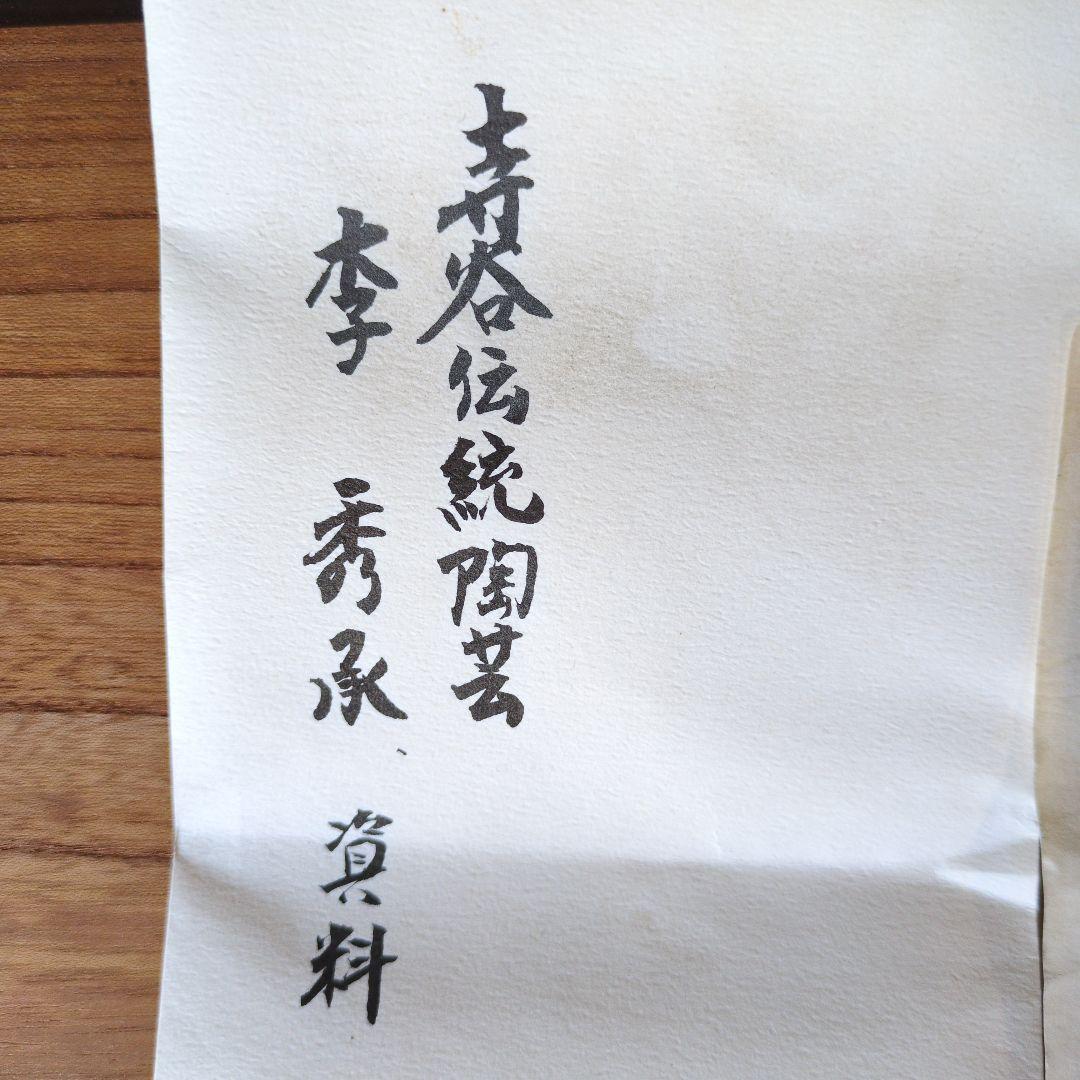 寿谷伝統陶芸
李 秀承 資料